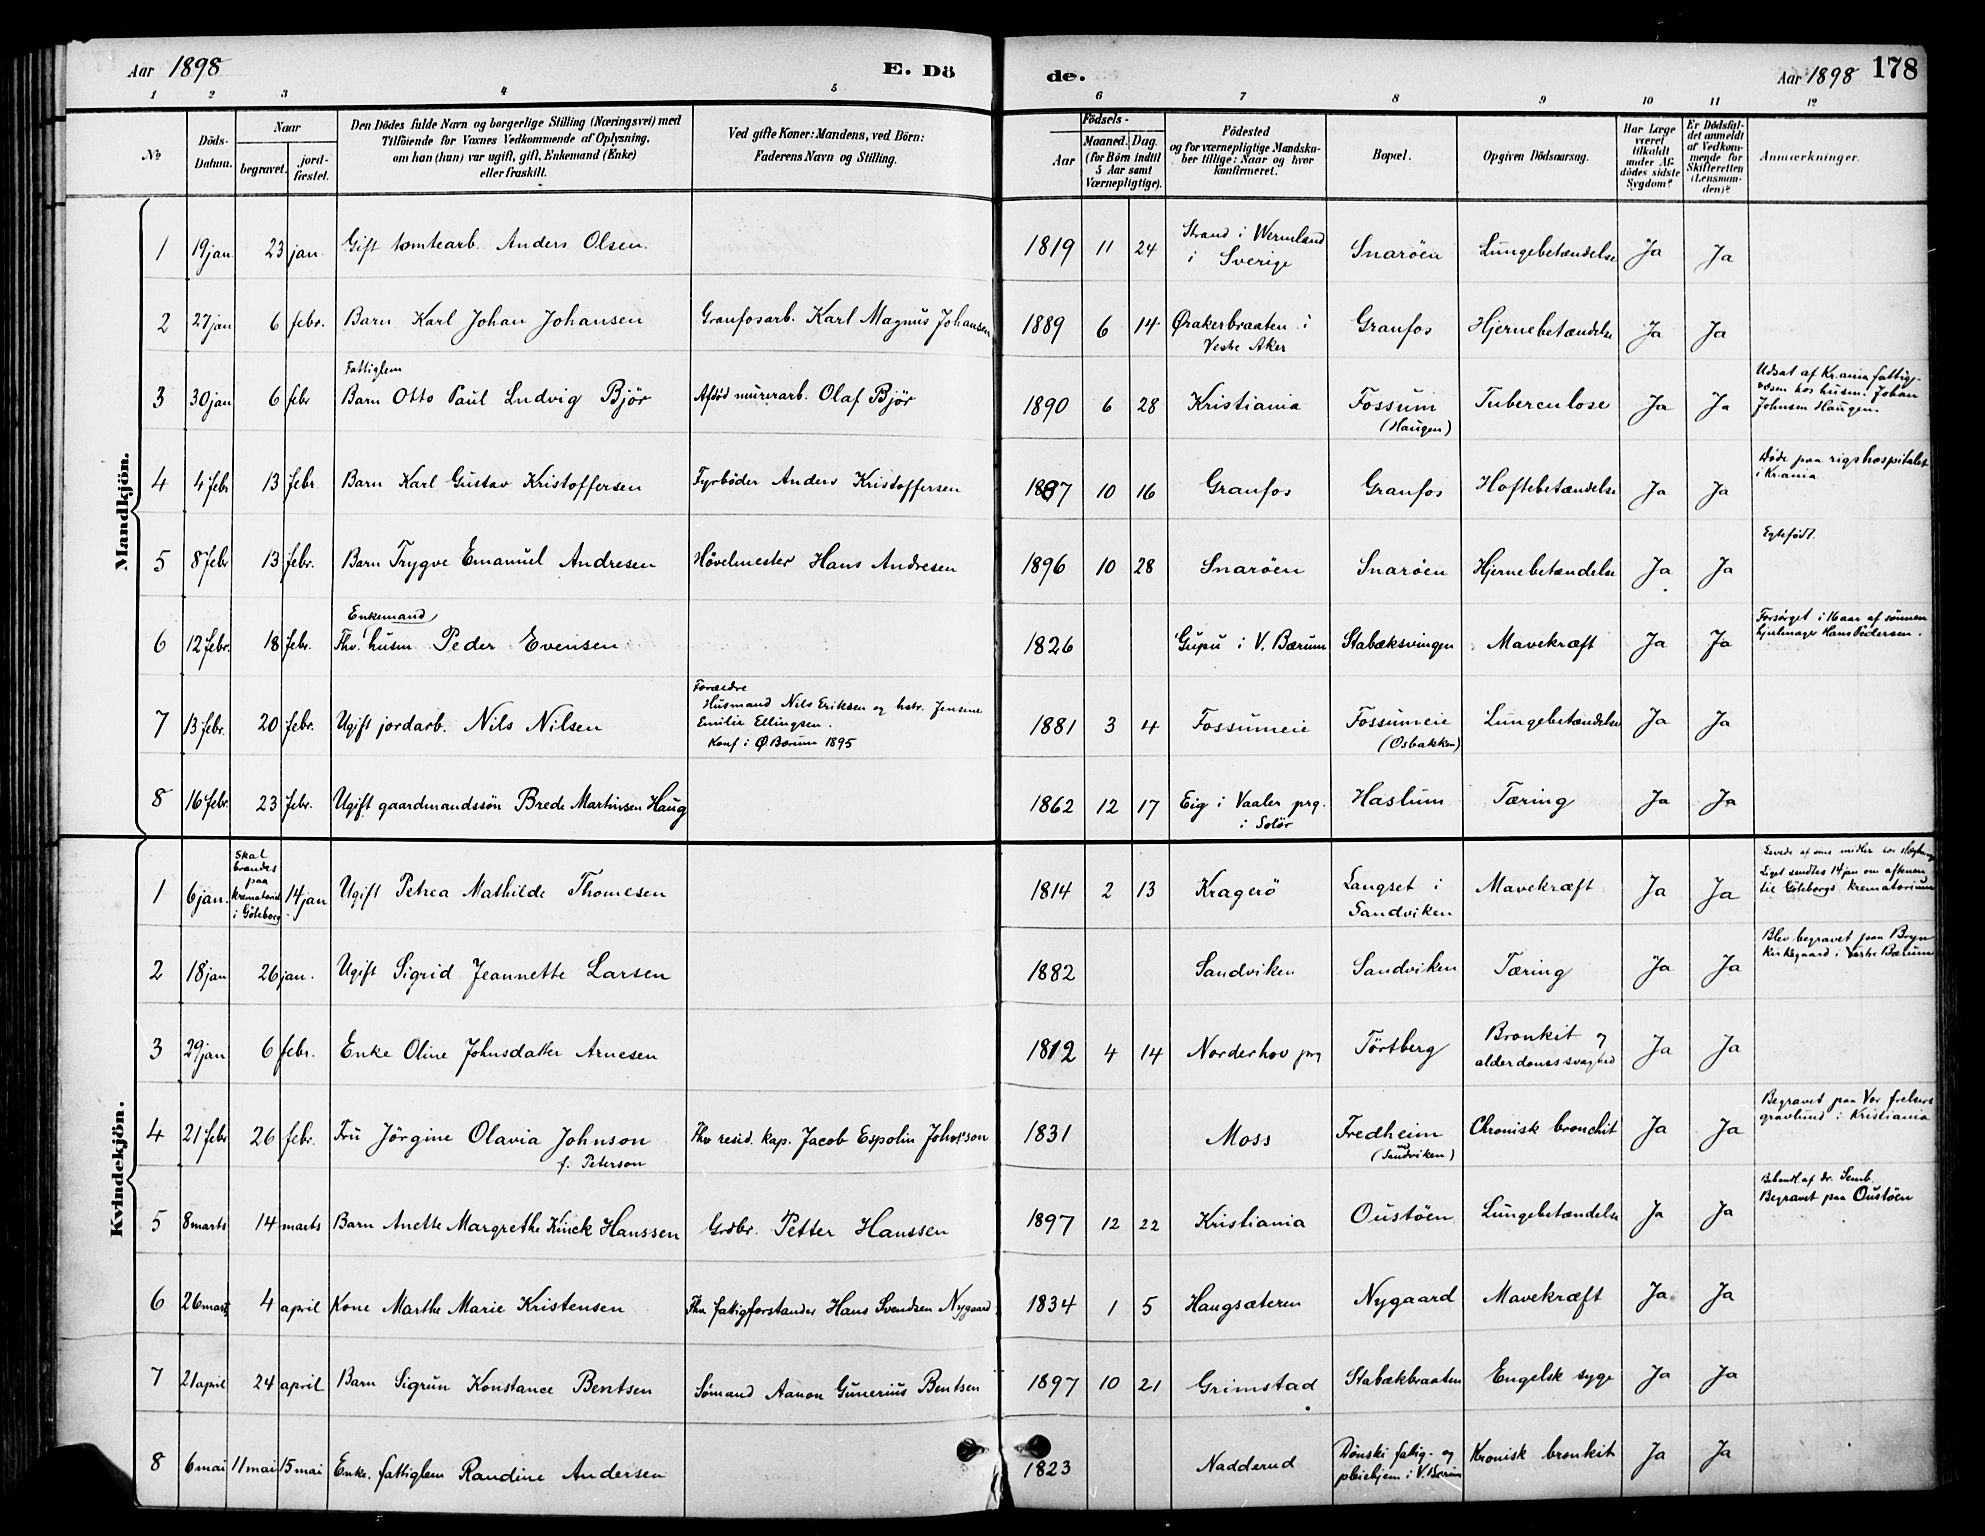 Aar 1898 E. Dö de. Aar 1898 178
1 2 3 4 5 6 7 8 9 10 11 12
No Döds-Datum. Naar begravet. jordfæstet. Den Dödes fulde Navn og borgerlige Stilling (Næringsvei) med Tilföiende for Voxnes Vedkommende af Oplysning, om han (hun) var ugift, gift, Enkemand (Enke) eller fraskilt. Ved gifte Koner: Mandens, ved Börn: Faderens Navn og Stilling. Födsels- Aar Maaned. Dag. (for Börn indtil 5 Aar samt Værnepligtige). Födested og for værnepligtige Mandskaber tillige: Naar og hvor konfirmeret. Bopæl. Opgiven Dödsaarsag. Har Læge været tilkaldt under Afdödes sidste Sygdom? Er Dödsfaldet anmeldt af Vedkommende for Skifteretten (Lensmanden)? Anmærkninger.
Mandkjön.
1 19 jan 23 jan. Gift tomtearb. Anders Olsen. 1819 11 24 Strand i Wermland i Sverige Snaröen Lungebetændelse Ja Ja
2 27 jan 6 febr. Barn Karl Johan Johansen Granfosarb. Karl Magnus Johansen 1889 6 14 Ørakerbraaten i Vestre Aker Granfos Hjernebetændelse Ja Ja
3 30 jan 6 febr Fattiglem Barn Otto Paul Ludvig Björ Afdöd murerarb. Olaf Björ 1890 6 28 Kristiania Fossum (Haugen) Tuberculose Ja Ja Udsat af Kr.ania fattigvæsen hos husm. Johan Johnsen Haugen.
4 4 febr 13 febr. Barn Karl Gustav Kristoffersen Fyrböder Anders Kristoffersen 1897 10 16 Granfos Granfos Hoftebetændelse Ja Ja Döde paa rigshospitalet i Kr.ania
5 8 febr 13 febr. Barn Trygve Emanuel Andresen Hövelmester Hans Andresen 1896 10 28 Snaröen Snaröen Hjernebetændelse Ja Ja Egtefödt.
6 12 febr. 18 febr. Enkemand Fhv. husm Peder Evensen 1826 Gupu i V. Bærum Stabæksvingen Mavekræft Ja Ja Forsörget i 16 aar af sönnen hjulmager Hans Pedersen.
7 13 febr. 20 febr. Ugift jordarb. Nils Nilsen Forældre Husmand Nils Eriksen og hstr. Jensine Emilie Ellingsen. Konf i Ø. Bærum 1895 1881 3 4 Fossumeie Fossumeie (Osbakken) Lungebetændelse Ja Ja
8 16 febr. 23 febr. Ugift gaardmandssön Brede Martinsen Haug 1862 12 17 Eig i Vaaler prg. i Solör Haslum Tæring Ja Ja
Kvindekjön.
1 6 jan. Skal brændes paa krematoriet i Göteborg 14 jan Ugift Petrea Mathilde Thomesen 1814 2 13 Kragerö Langset i Sandviken Mavekræft Ja Ja Levede af egne midler hos slægtninge Liget sendtes 14 jan om aftenen til Göteborgs krematorium
2 18 jan 26 jan. Ugift Sigrid Jeannette Larsen 1882 Sandviken Sandviken Tæring Ja Ja Blev begravet paa Bryn kirkegaard i Vestre Bærum
3 29 jan 6 febr. Enke Oline Johnsdatter Arnesen 1812 4 14 Norderhov prg Törtberg Bronkit og alderdomssvaghed Ja Ja
4 21 febr 26 febr. Fru Jörgine Olavia Johnson f. Peterson Fhv resid. kap. Jacob Espolin Johnson 1831 Moss Fredheim (Sandviken) Chronisk bronchit Ja Ja Begravet paa Vor frelsers gravlund i Kristiania
5 8 marts 14 marts Barn Anette Margrethe Kinck Hanssen Grdbr. Petter Hanssen 1897 12 22 Kristiania Oustöen Lungebetændelse Ja Ja Behandl af dr. Semb. Begravet paa Oustöen
6 26 marts 4 april Kone Marthe Marie Kristensen Fhv fattigforstander Hans Svendsen Nygaard 1834 1 5 Haugsæteren Nygaard Mavekræft Ja Ja
7 21 april 24 april Barn Sigrun Konstance Bentsen Sömand Aanon Gunerius Bentsen 1897 10 21 Grimstad Stabækbraaten Engelsk syge Ja Ja
8 6 mai 11 mai 15 mai Enke. fattiglem Randine Andersen 1823 Nadderud Dönski fattig- og pleiehjem i V. Bærum Kronisk bronkit Ja Ja